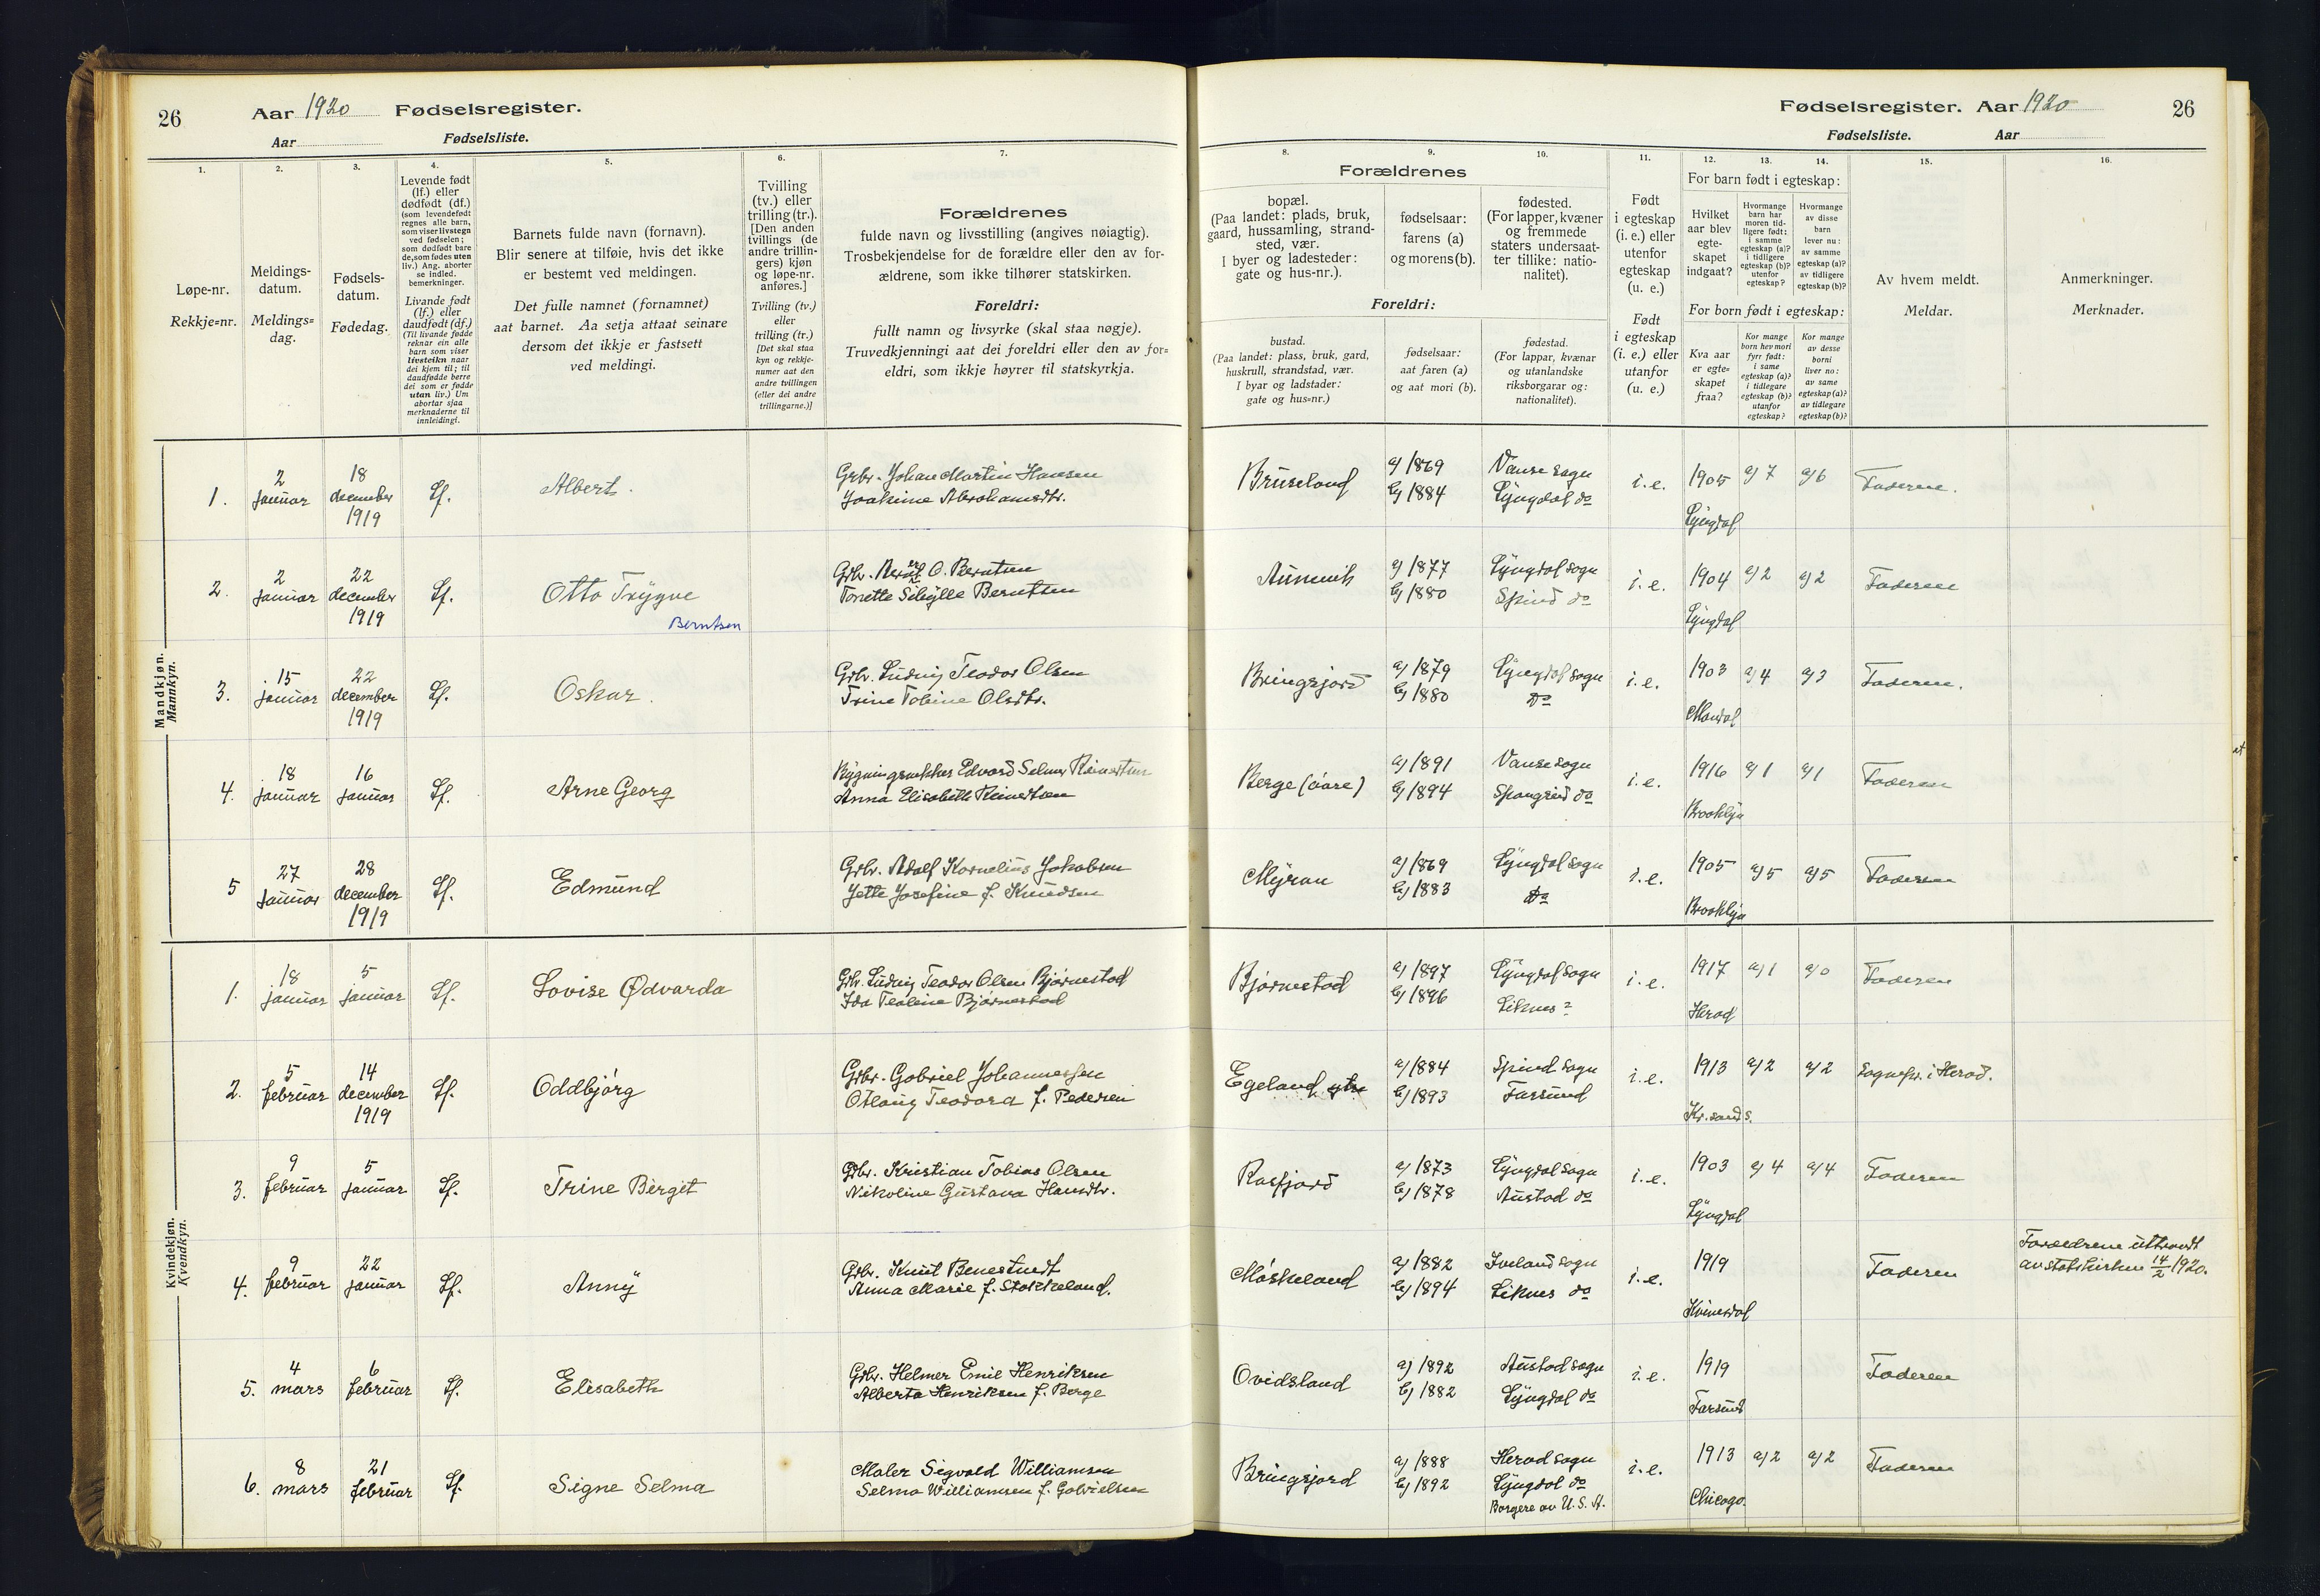 26
Aar 1920 Fødselsregister.
Aar Fødselsliste.
Fødselsregister. Aar 1920
26
Fødselsliste. Aar
1.
2.
3.
4.
5.
6.
7.
8.
9.
10.
11.
12.
13.
14.
15.
16.
Løpe-nr.
Rekkje=nr.
Meldings-
datum.
Meldings=
dag.
Fødsels-
datum.
Fødedag.
Levende født
(lf.) eller
dødfødt (df.)
(som levendefødt
regnes alle barn,
som viser livstegn
ved fødselen;
som dødfødt bare
de, som fødes uten
liv.) Ang. aborter
se indled.
bemerkninger.
Livande født
(lf.) eller
daudfødt (df.)
(Til livande fødde
reknar ein alle
barn som viser
livsteikn naar
dei kjem til; til
daudfødde berre
dei som er fødde
utan liv.) Um
abortar sjaa
merknaderne til
innleidingi.
Barnets fulde navn (fornavn).
Blir senere at tilføie, hvis det ikke
er bestemt ved meldingen.
Det fulle namnet (fornamnet)
aat barnet. Aa setja attaat seinare
dersom det ikkje er fastsett
ved meldingi.
Tvilling
(tv.) eller
trilling (tr.).
[Den anden
tvillings (de
andre trillin-
gers) kjøn
og løpe-nr.
anføres.]
Tvilling (tv.)
eller
trilling (tr.)
[Det skal staa
kyn og rekkje-
numer aat den
andre tvillingen
(eller dei andre
trillingarne.)]
Forældrenes
fulde navn og livsstilling (angives nøiagtig).
Trosbekjendelse for de forældre eller den av for-
ældrene, som ikke tilhører statskirken.
Foreldri:
fullt namn og livsyrke (skal staa nøgje).
Truvedkjenningi aat dei foreldri eller den av for=
eldri, som ikkje høyrer til statskyrkja.
Forældrenes
bopæl.
(Paa landet: plads, bruk,
gaard, hussamling, strand-
sted, vær.
I byer og ladesteder:
gate og hus-nr.).
fødselsaar:
farens (a)
og morens (b).
fødested.
(For lapper, kvæner
og fremmede
staters undersaat-
ter tillike: natio-
nalitet).
Foreldri:
bustad.
(Paa landet: plass, bruk, gard,
huskrull, strandstad, vær.
I byar og ladstader:
gate og hus=nr.)
fødselsaar:
aat faren (a)
og aat mori (b).
fødestad.
(For lappar, kvænar
og utanlandske
riksborgarar og:
nationalitet).
Født
i egteskap
(i. e.) eller
utenfor
egteskap
(u. e.)
Født
i egteskap
(i. e.) eller
utanfor
(u. e.)
For barn født i egteskap:
Hvilket
aar blev
egte-
skapet
indgaat?
Hvormange
barn har
moren tid-
ligere født:
i samme
egteskap (a)?
i tidligere
egteskap (b)?
utenfor
egteskap?
Hvormange
av disse
barn
lever nu:
av samme
egteskap (a)?
av tidligere
egteskap (b)?
For born født i egteskap:
Kva aar
er egte=
skapet
fraa?
Kor mange
born hev mori
fyrr født:
i same
egteskap (a)?
i tidlegare
egteskap (b)?
utanfor
egteskap?
Kor mange
av desse
borni
liver no:
av same
egteskap (a)?
av tidlegare
egteskap (b)?
Av hvem meldt.
Meldar.
Anmerkninger.
Merknader.
Mandkjøn.
Mannkyn.
1. 2 januar 18 december 1919 Lf. Albert. Grbr. Johan Martin Hansen
Joakime Abrahamsdtr.
Bruseland a) 1869 b) 1884 Vanse sogn Lyngdal do i. e. 1905 Lyngdal a) 7 a) 6 Faderen.
2. 2 januar 22 december 1919 Lf. Otto Trygve Berntsen Grbr. O. Berntsen
Tonette Sibylle Berntsen
a) 1877 b) 1880 Lyngdal sogn Spind do i. e. 1904 Lyngdal a) 2 a) 2 Faderen
3. 15 januar 22 december 1919 Lf. Oskar. Grbr. Ludvig Teodor Olsen
Trine Tobine Olsdtr.
Bringsjord a) 1879 b) 1880 Lyngdal sogn Do i. e. 1903 Mandal a) 4 a) 3 Faderen.
4. 18 januar 16 januar Lf. Arne Georg Edvard Selmer Reinertsen
Anna Elisabeth Reinertsen
Berge (aare) a) 1891 b) 1894 Vanse sogn Spangereid do i. e. 1916 Brooklyn a) 1 a) 1 Faderen
5 27 januar 28 december 1919 Lf. Edmund Grbr. Adolf Kornelius Jakobsen
Jette Josefine f. Knudsen
Myran a) 1869 b) 1883 Lyngdal sogn Do i. e. 1905 Brooklyn a) 5 a) 5 Faderen
Kvindekjøn.
Kvendkyn.
1. 18 januar 5 januar Lf. Lovise Ødvarda Grbr. Ludvig Teodor Olsen Bjørnestad
Ida Teoline Bjørnestad
Bjørnestad a) 1897 b) 1896 Lyngdal sogn Liknes i. e. 1917 Herad a) 1 a) 0 Faderen
2. 5 februar 14 december 1919 Lf. Oddbjørg Grbr. Gabriel Johannessen
Otlaug Teodora f. Pedersen
Egeland a) 1884 b) 1893 Spind sogn Farsund i. e. 1913 Kr.sand S. a) 2 a) 2 Sognepr. i Herad.
3. 9 februar 5 januar Lf. Trine Birgit Grbr. Kristian Tobias Olsen
Nikoline Gustava Hansdtr.
Rosfjord a) 1873 b) 1878 Lyngdal sogn Austad do i. e. 1903 Lyngdal a) 4 a) 4 Faderen
4. 9 februar 22 januar Lf. Anny Grbr. Knut
Anna Marie f. Stokkeland.
Møskeland a) 1882 b) 1894 Iveland sogn Liknes do i. e. 1919 Kvinesdal Faderen
Forældrene uttraadt
av statskirken 14/2 1920.
5. 4 mars 6 februar Lf. Elisabeth Grbr. Helmer Emil Henriksen
Alberta Henriksen f. Berge
Ovidsland a) 1892 b) 1882 Austad sogn Lyngdal do i. e. 1919 Farsund Faderen
6. 8 mars 21 februar Lf. Signe Selma Maler Sigvald Williamsen
Selma Williamsen f. Gabrielsen
Bringsjord a) 1888 b) 1892 Herad sogn Lyngdal do Borgere av U. S. A. i. e. 1913 Chicago. a) 2 a) 2 Faderen